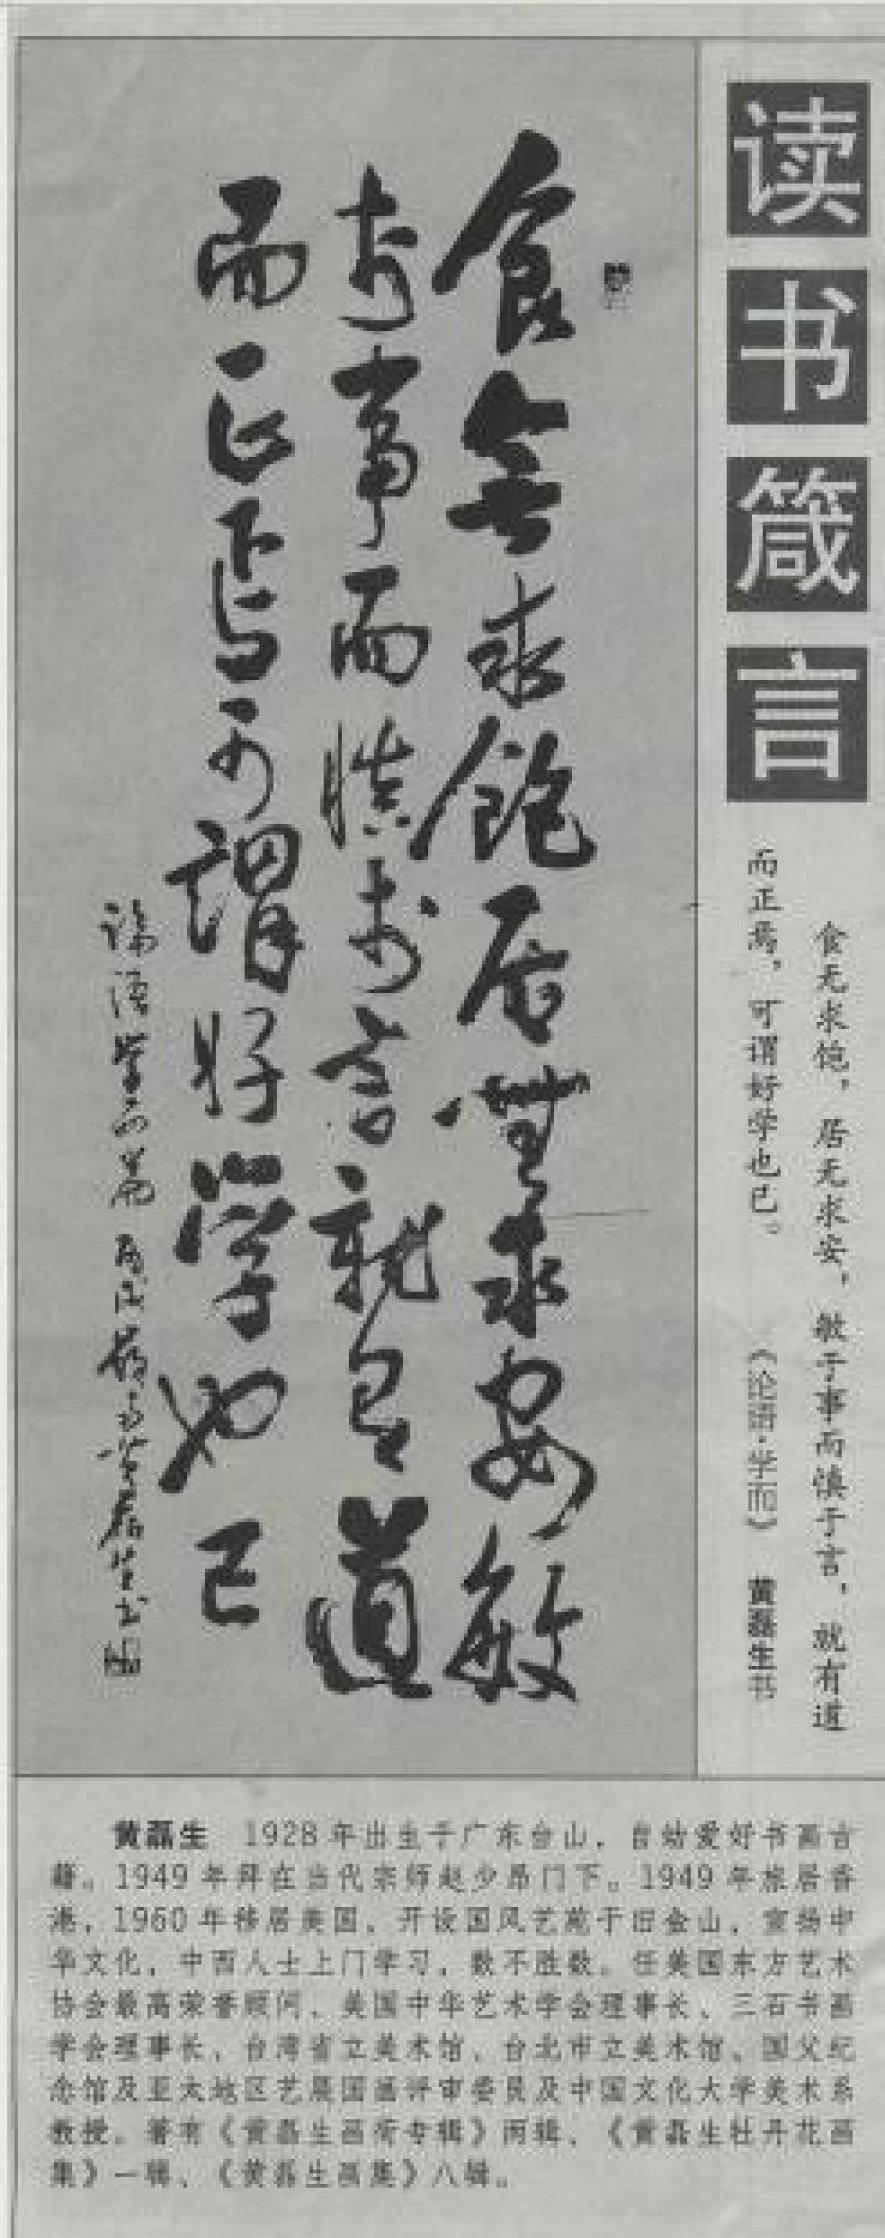 读书箴言
食无求饱，居无求安，敏于事而慎于言，就有道
而正焉，可谓好学也已。 《论语·学而》 黄磊生书
食無求飽居無求安敏
於事而慎於言就有道
而正焉可謂好學也已
論語學而篇 黃磊生書
黄磊生 1928年出生于广东台山，自幼爱好书画古
籍。1949年拜在当代宗师赵少昂门下。1949年旅居香
港，1960年移居美国，开设国风艺苑于旧金山，宣扬中
华文化，中西人士上门学习，数不胜数。任美国东方艺术
协会最高荣誉顾问、美国中华艺术学会理事长、三石书画
学会理事长、台湾省立美术馆、台北市立美术馆、国父纪
念馆及亚太地区艺展国画评审委员及中国文化大学美术系
教授。著有《黄磊生画荷专辑》两辑、《黄磊生牡丹花画
集》一辑、《黄磊生画集》八辑。